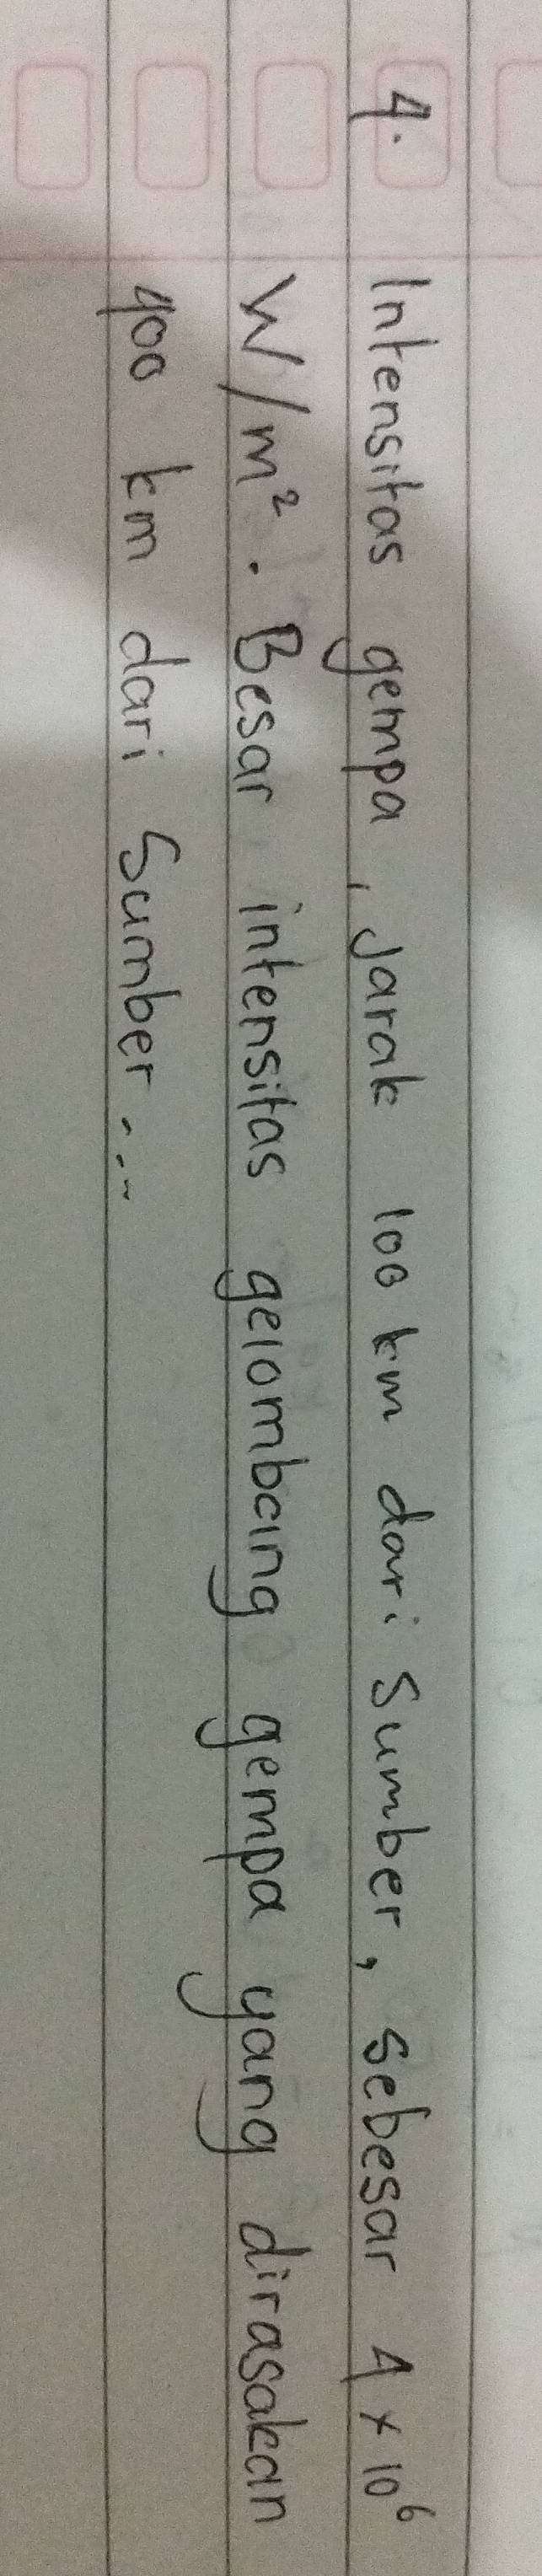 4. Intensitas gempa, Jarak 100 km dari Sumber, sebesar 4 x 10⁶
W/m². Besar intensitas gelombang gempa yang dirasakan
400 km dari Sumber ...